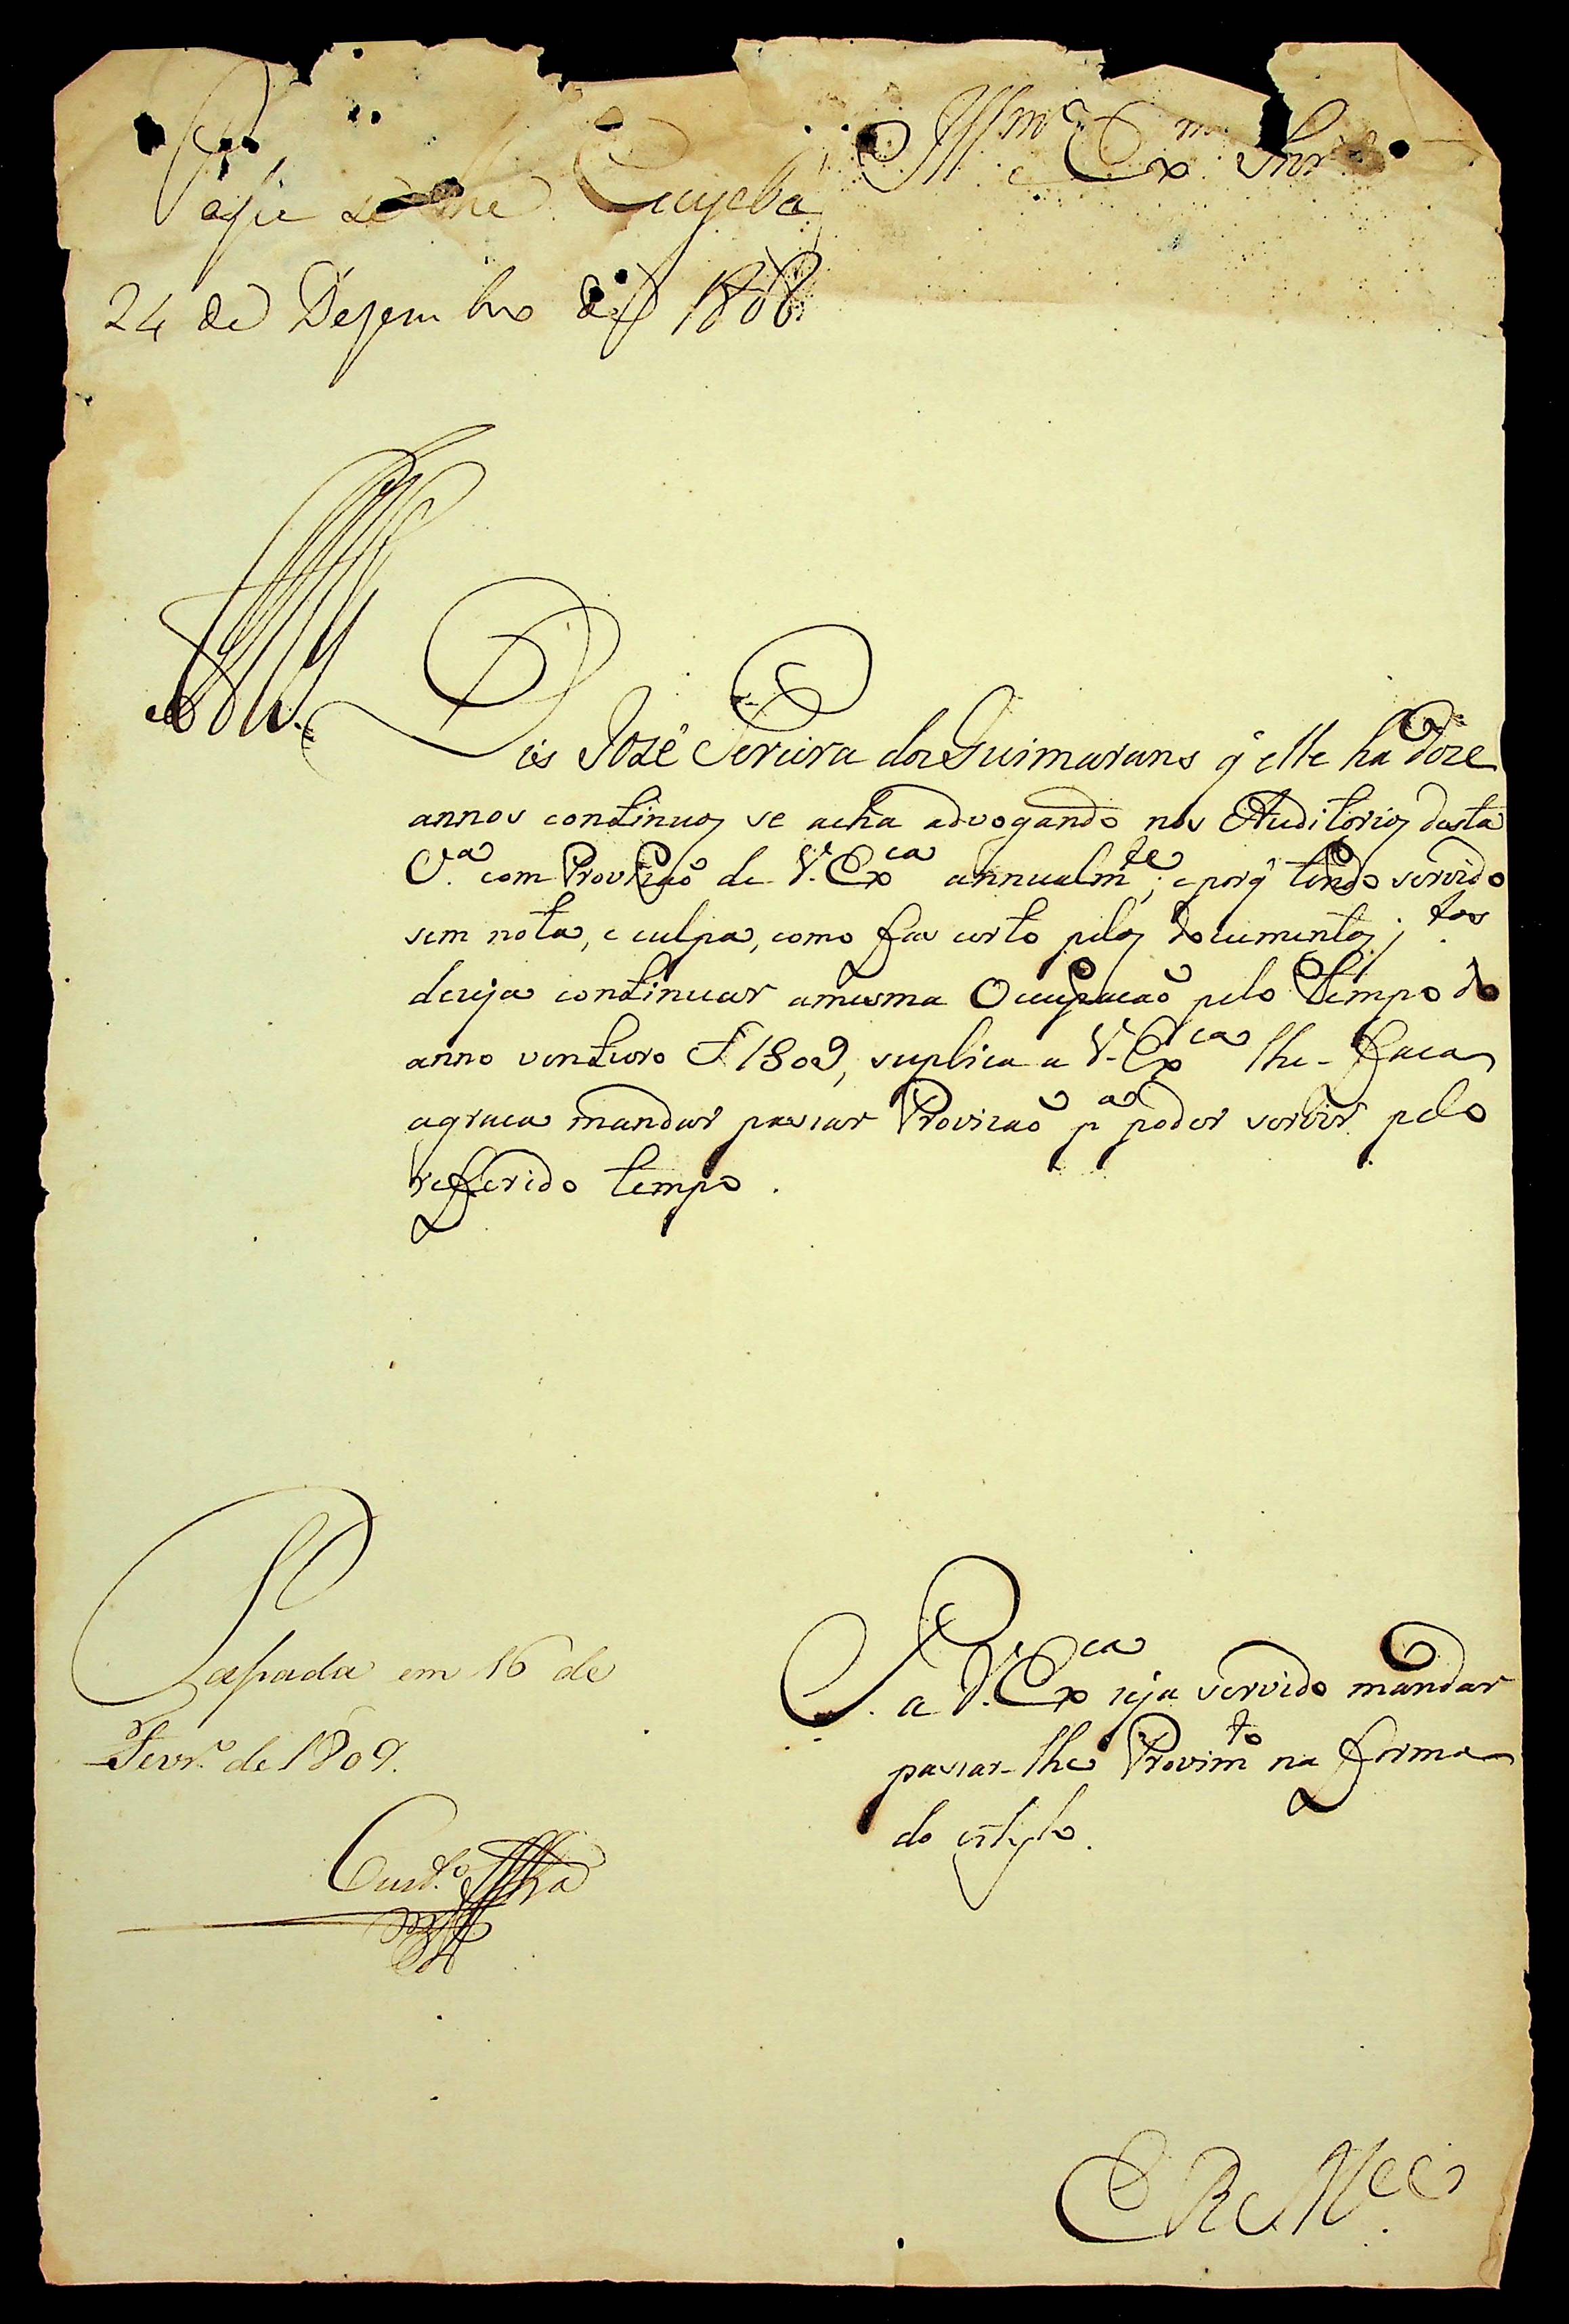 Ill.mo e Ex.mo Snr.
Passe se lhe Cuyabá
24 de Dezembro de 1808
Dis Jozé Pereira dos Guimarans q̃ elle ha doze
annos continuos se acha advogando nos Auditorios desta
V.ª com Provizaõ de V. Ex.ca annualm.te; e porq̃ tendo servido
sem nota, e culpa, como faz certo pelos documentos j.tos
dezeja continuar amesma Occupacaõ pelo tempo do
anno venturo d'1809, suplica a V. Ex.ca lhe faca
agraca mandar passar Provizaõ p.ª poder servir pelo
refferido tempo.
P. a V. Ex.ca seja servido mandar
passar-lhe Provim.to na forma
do estylo.
Passada em 16 de
Fevr.º de 1809.
Cust.º
E R M.ce